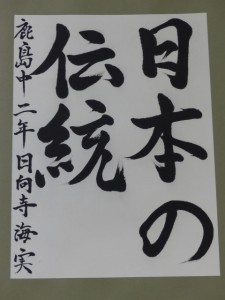 日本の
伝統
鹿島中二年日向寺海実